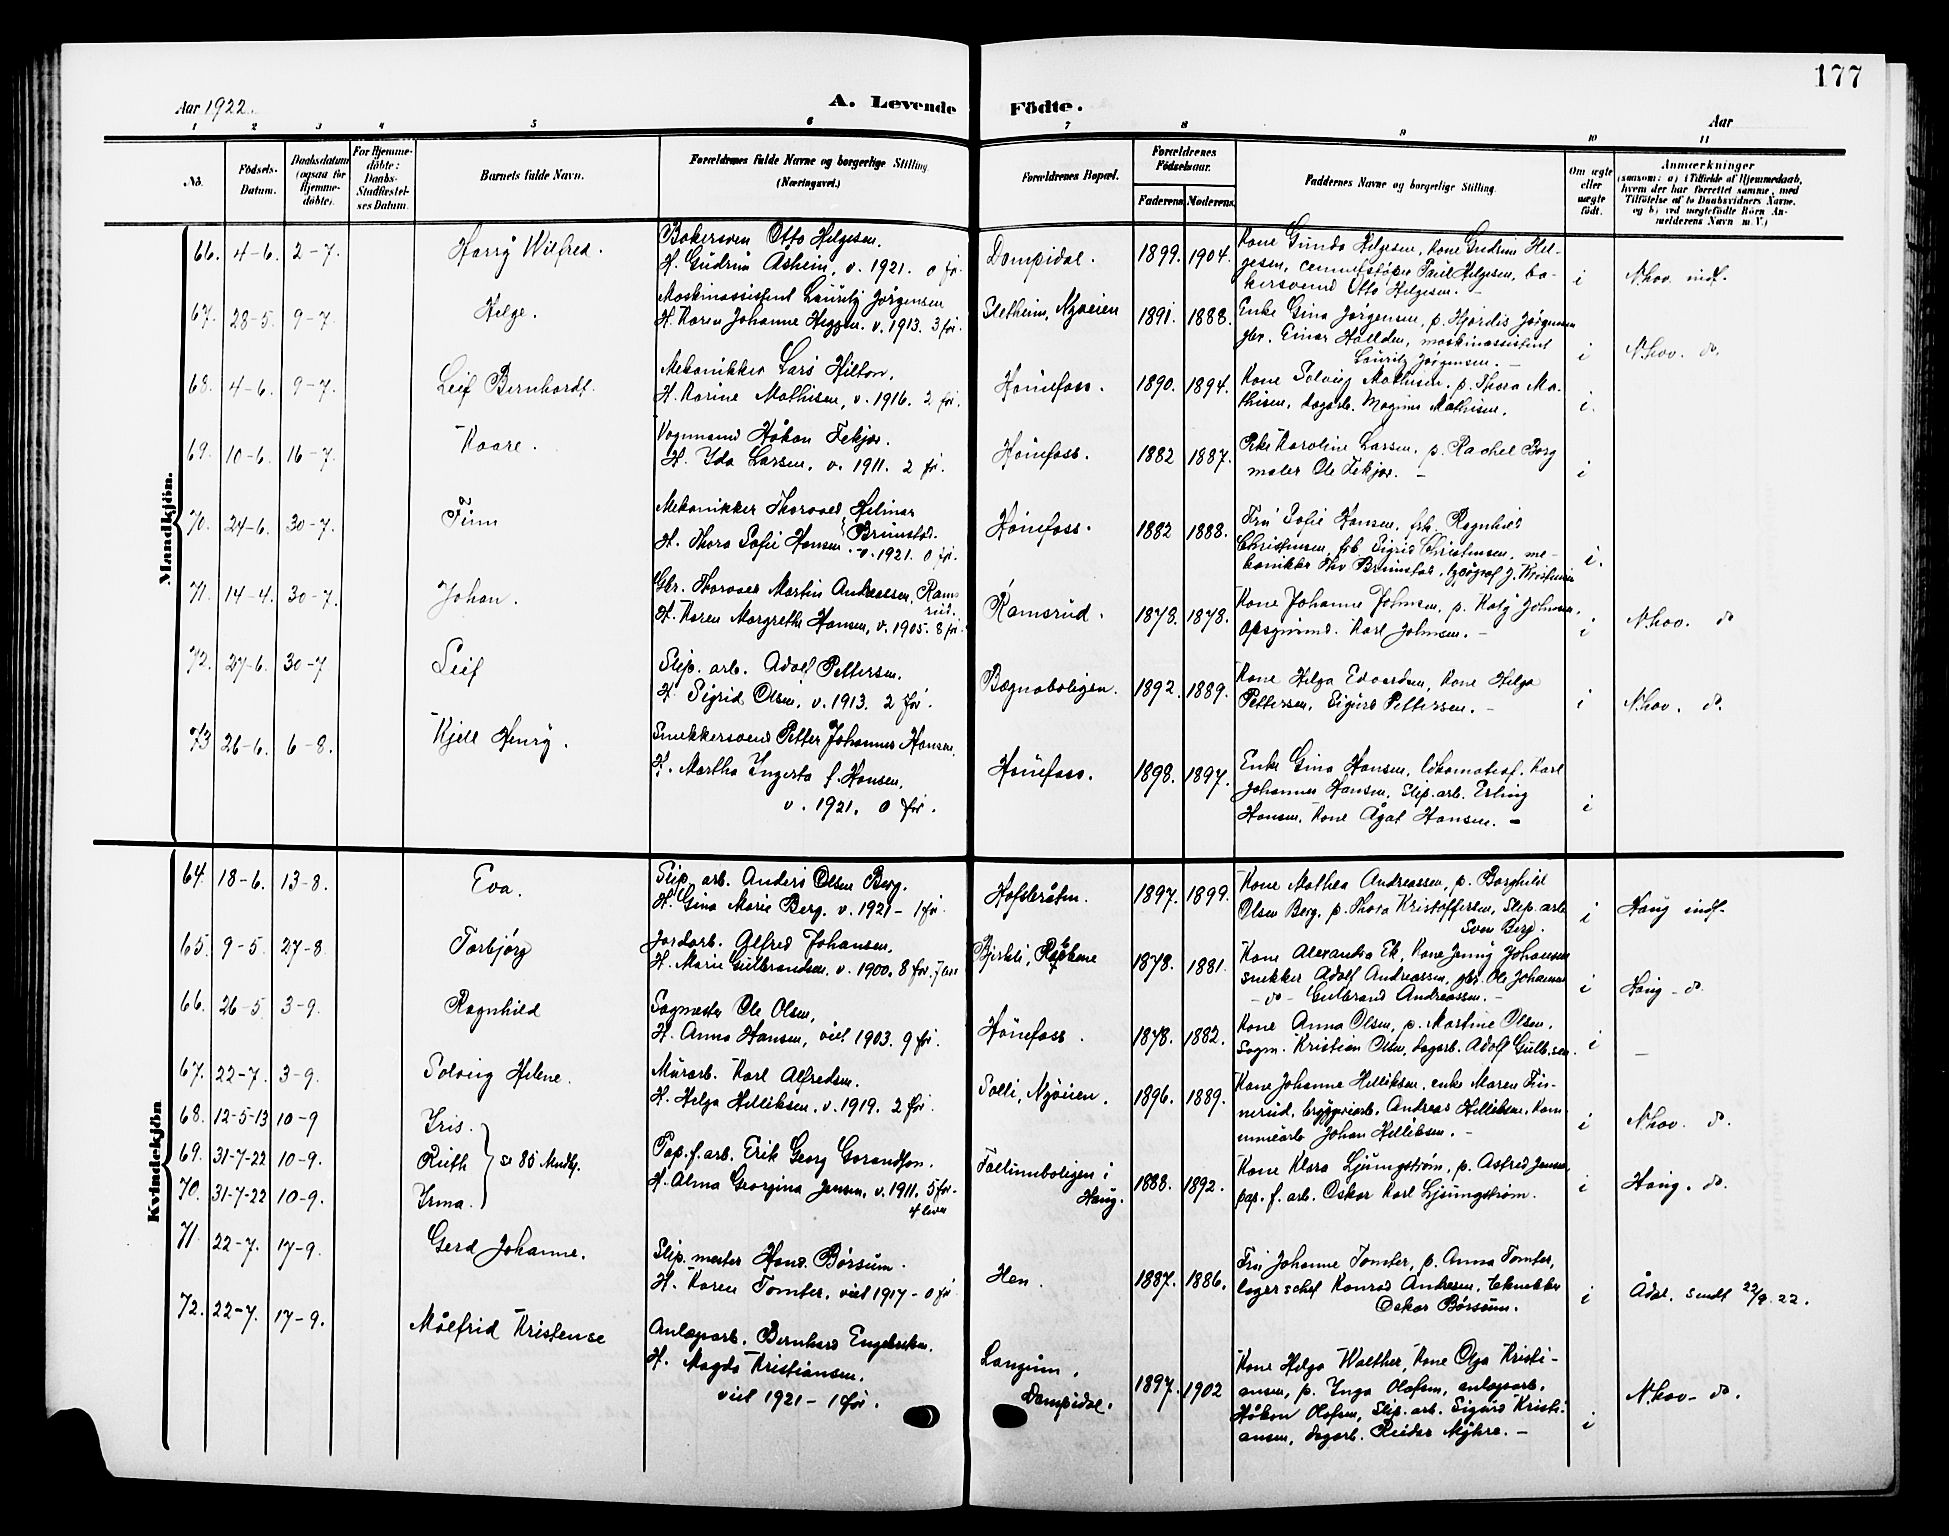 177
Aar 1922.
A. Levende Födte.
Aar
1 2 3 4 5 6 7 8 9 10 11
No.
Födsels-
Datum.
Daabsdatum
(ogsaa for
Hjemme-
döbte).
For Hjemme-
döbte:
Daabs-
Stadfæstel-
ses Datum.
Barnets fulde Navn.
Forældrenes fulde Navne og borgerlige Stilling
(Næringsvei.)
Forældrenes Bopæl.
Forældrenes
Födselsaar.
Faderens Moderens
Faddernes Navne og borgerlige Stilling.
Om ægte
eller
uægte
födt.
Anmærkninger
(saasom: a) i Tilfælde af Hjemmedaab,
hvem der har forrettet samme, med
Tilföielse af to Daabsvidners Navne.
og b) ved uægtefödte Börn An-
melderens Navn m. V.)
Mandkjön.
66. 4-6. 2-7. Harry Wilfred.
Bakersven Otto Helgesen.
H. Gudrun Asheim, v. 1921. 0 før.
Dompidal. 1899. 1904.
Kone Gunda Helgesen, Kone Gudrun Hel-
gesen, cementstøper Paul Helgesen, ba-
kersvend Otto Helgesen. -
i N.hov. indf.
67. 28-5. 9-7. Helge.
Maskinassistent Lauritz Jørgensen
H. Karen Johanne Heggen. v. 1913. 3 før.
Sletheim, Nyveien 1891. 1888.
Enke Gina Jørgensen, p. Hjørdis Jørgensen
gbr. Einar Hallden, maskinassistent
Lauritz Jørgensen. -
i N.hov. do.
68. 4-6. 9-7. Leif Bernhardt.
Mekanikker Lars Hilton.
H. Karine Mathisen, v. 1916. 2 før.
Hønefoss. 1890. 1894.
Kone Solveig Mathisen, p. Thora Ma-
thisen, dagarb. Magnus Mathisen.
i.
69. 10-6. 16-7. Kaare.
Vognmand Håkon Fekjær.
H. Ida Larsen, v. 1911. 2 før.
Hønefoss. 1882 1887.
Pike Karoline Larsen. p. Rachel Borg
maler Ole Fekjær. -
i
70. 24-6. 30-7. Finn
Mekanikker Thorvald Hilmar
Brunstad.
H. Thora Sofie Hansen. v. 1921. 0 før.
Hønefoss. 1882 1888.
Fru Sofie Hansen, frk. Ragnhild
Christensen, frk. Sigrid Christensen, me-
kanikker Thv Brunstad, typograf J. Kristensen
i.
71. 14-4. 30-7. Johan.
Gbr. Thorvald Martin Andreassen, Rams-
rud.
H. Karen Margrethe Hansen, v. 1905. 8 før.
Ramsrud. 1878. 1878.
Kone Johanne Johnsen, p. Katy Johnsen,
Karl Johnsen. -
i N.hov. do
72. 27-6. 30-7 Leif
Slip. arb. Adolf Pettersen.
H. Sigrid Olsen, v. 1913. 2 før.
Bægnaboligen. 1892. 1889.
Kone Helga Edvardsen, Kone Helga
Pettersen, Sigurd Pettersen. -
i N.hov. do.
73 26-6. 6-8. Kjell Henry.
Snekkersvend Petter Johannes Hansen.
H. Martha Ingerta f. Hansen,
v. 1921. 0 før.
Hønefoss. 1898. 1897.
Enke Gina Hansen, lokomotivf. Karl
Johannes Hansen, Slip. arb. Erling
Hansen, Kone Ågot Hansen. -
i
Kvindekjön
64. 18-6. 13-8. Eva.
Slip. arb. Anders Olsen Berg.
H. Gina Marie Berg. v. 1921 - 1 før.
Hofsbråten. 1897. 1899.
Kone Mathea Andreassen, p. Borghild
Olsen Berg, p. Thora Kristoffersen, Slip. arb
Sven Berg.
i Haug indf.
65. 9-5. 27-8 Torbjørg
Jordarb. Alfred Johansen,
H. Marie Gulbrandsen. v. 1900. 8 før. 7 lever
Bjerkli, 1878. 1881.
Kone Alexandra Ek, Kone Jenny Johansen
snekker Adolf Andreassen, gbr. Ole Johansen
- do - Gulbrand Andreassen. -
i Haug - do.
66. 26-5 3-9. Ragnhild
Sagmester Ole Olsen,
H. Anna Hansen, viet 1903. 9 før.
Hønefoss. 1878. 1882.
Kone Anna Olsen, p. Martine Olsen.
Sagm. Kristian Olsen, dagarb. Adolf Gulb.sen.
i -
67. 22-7. 3-9. Solveig Helene.
Murarb. Karl Alfredsen.
H. Helga Helliksen. v. 1919. 2 før.
Solli, Nyveien. 1896. 1889.
Kone Johanne Helliksen, enke Maren Fin-
nerud, bryggeriarb. Andreas Helliksen, Kom-
munearb Johan Helliksen. -
i N.hov. do.
68. 12-5-13 10-9 Iris.
69. 31-7-22 10-9. Ruth
70. 31-7-22 10-9. Irma.
se 85 Mndkj.
Pap.f.arb. Erik Georg Gorandson.
H. Alma Georgina Jensen, v. 1911. 5 før.
4 lever
Follumboligen i
Haug. 1888. 1892.
Kone Klara Ljungstrøm, p. Astrid Jensen,
pap. f. arb. Oskar Karl Ljungstrøm.
i Haug. do.
71. 22-7. 17-9. Gerd Johanne.
Slip. mester Hans Børsum.
H. Karen Tomter, viet 1917 - 0 før
Hen. 1887. 1886.
Fru Johanne Tomter, p. Anna Tomter,
lagerschef Konrad Andresen, tekniker
Oskar Børsum.
i Ådal. sendt 22/9. 22.
72. 22-7. 17-9. Målfrid Kristense
Anlægsarb. Bernhard Engebretsen.
H. Magda Kristiansen.
viet 1921 - 1 før.
Langum,
Dompidal. 1897. 1902
Kone Helga Walther, Kone Olga Kristi-
ansen, p. Inga Olafsen, anlægsarb.
Håkon Olafsen, Slip. arb. Sigurd Kristi-
ansen, dagarb. Reidar Myhre. -
i N.hov - do.